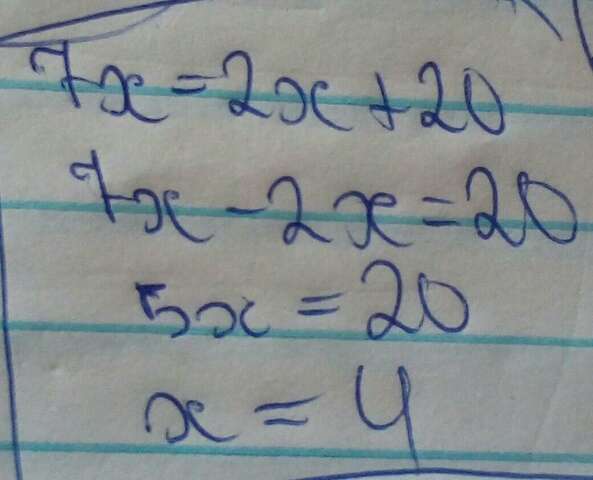 7x = 2x + 20
7x - 2x = 20
5x = 20
x = 4